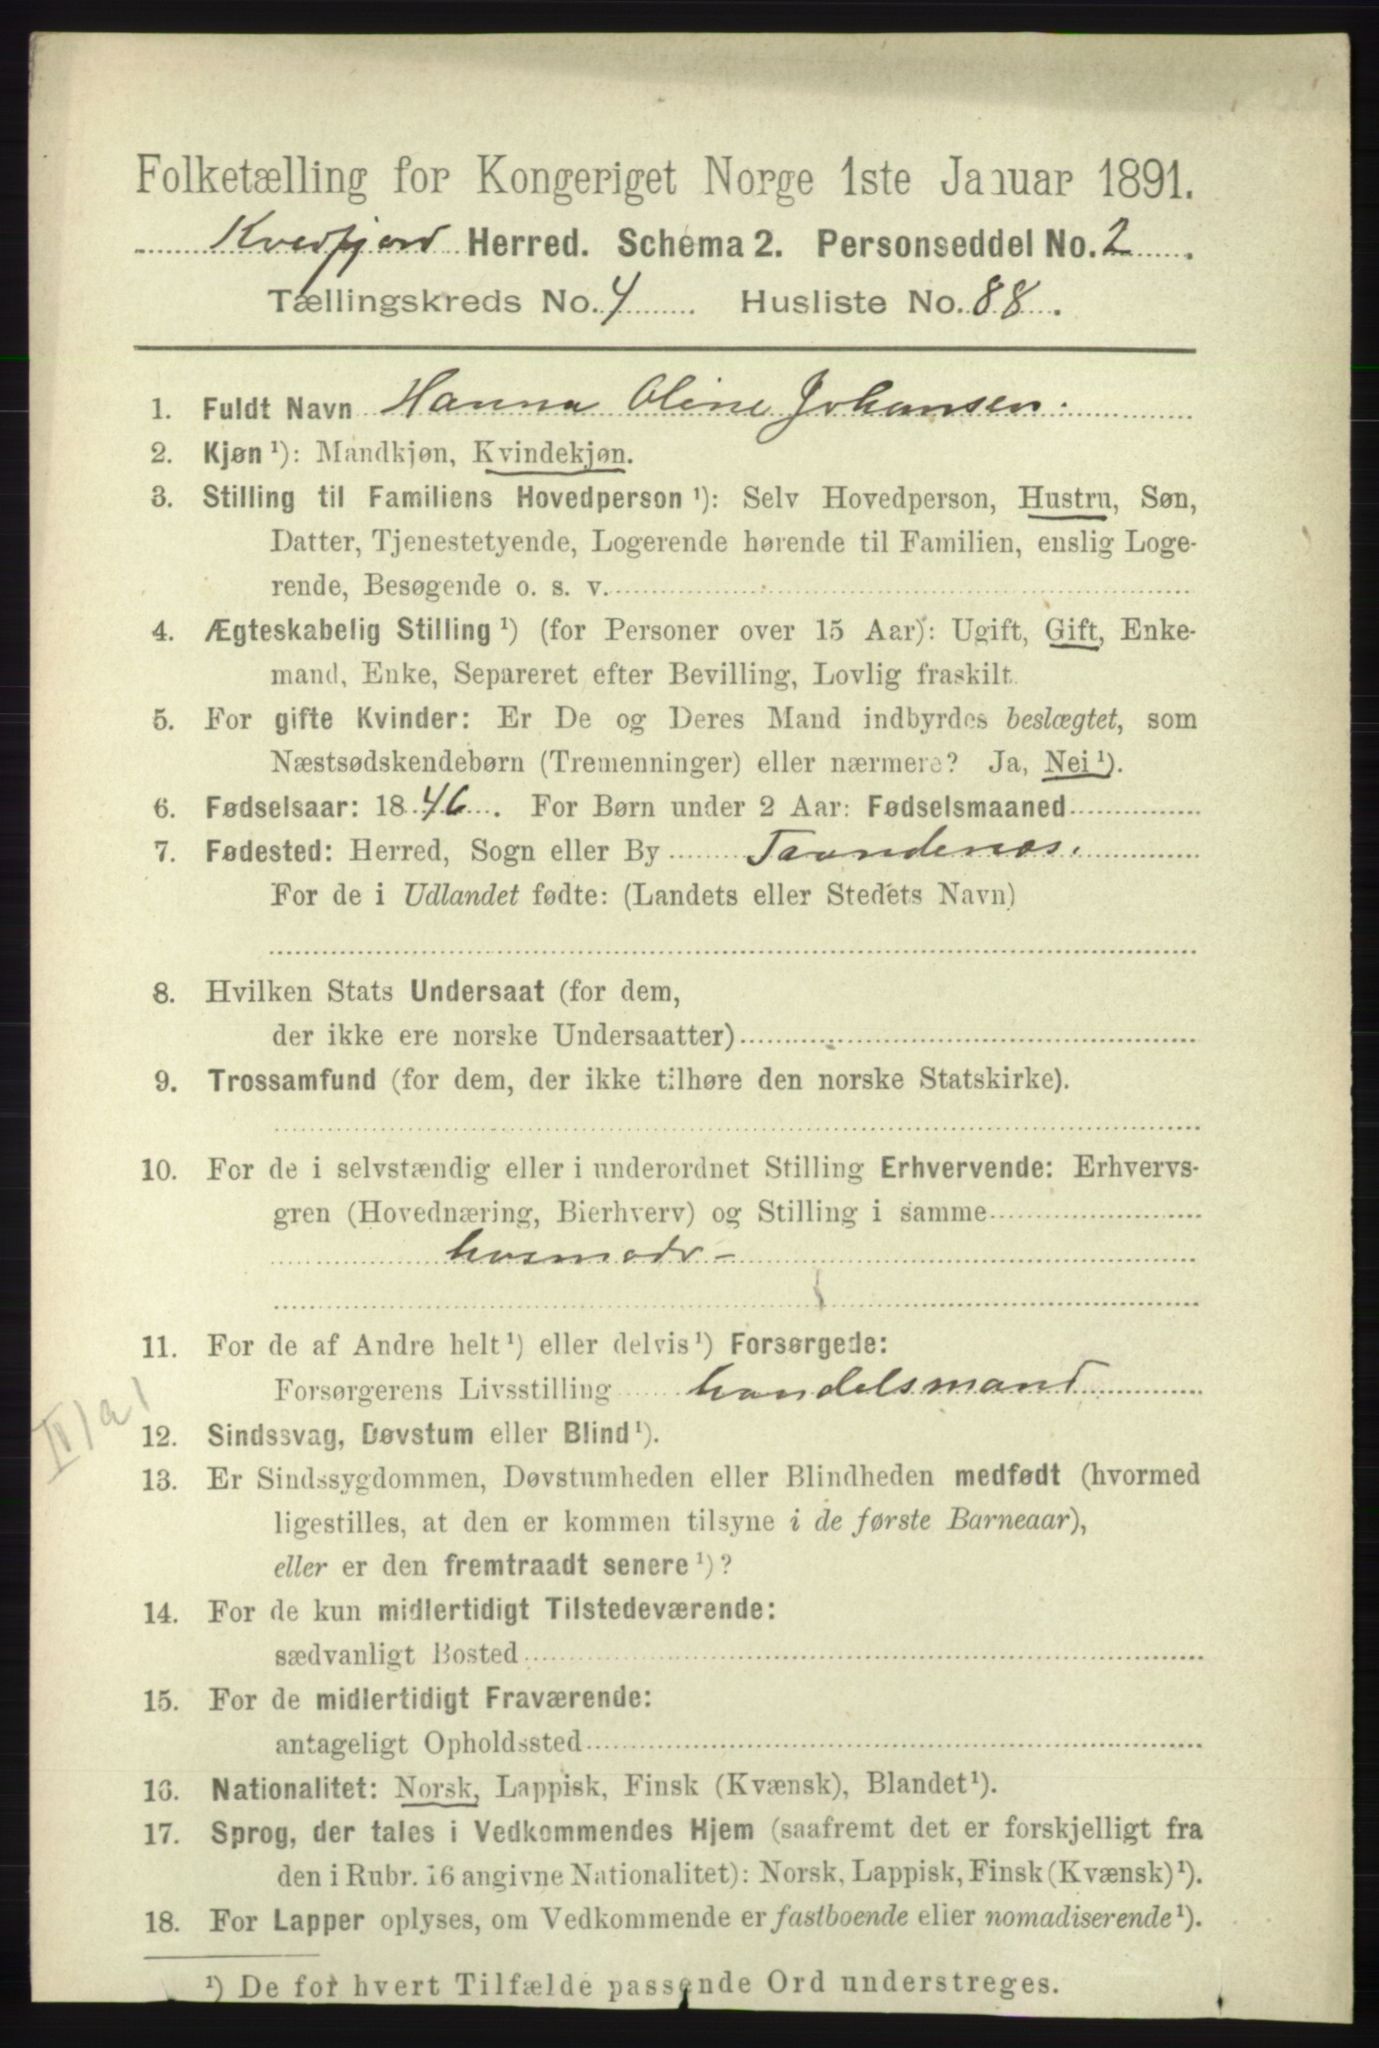 Folketælling for Kongeriget Norge 1ste Januar 1891.
Kvedfjord Herred. Schema 2. Personseddel No. 2.
Tællingskreds No. 4 Husliste No. 88.
1. Fuldt Navn Hanna Oline Johansen.
2. Kjøn ¹): Mandkjøn, Kvindekjøn.
3. Stilling til Familiens Hovedperson ¹): Selv Hovedperson, Hustru, Søn,
Datter, Tjenestetyende, Logerende hørende til Familien, enslig Loge-
rende, Besøgende o. s. v.
4. Ægteskabelig Stilling ¹) (for Personer over 15 Aar): Ugift, Gift, Enke-
mand, Enke, Separeret efter Bevilling, Lovlig fraskilt.
5. For gifte Kvinder: Er De og Deres Mand indbyrdes beslægtet, som
Næstsødskendebørn (Tremenninger) eller nærmere? Ja, Nei ¹).
6. Fødselsaar: 1846. For Børn under 2 Aar: Fødselsmaaned
7. Fødested: Herred, Sogn eller By Trondenæs.
For de i Udlandet fødte: (Landets eller Stedets Navn)
8. Hvilken Stats Undersaat (for dem,
der ikke ere norske Undersaatter)
9. Trossamfund (for dem, der ikke tilhøre den norske Statskirke).
10. For de i selvstændig eller i underordnet Stilling Erhvervende: Erhvervs-
gren (Hovednæring, Bierhverv) og Stilling i samme
husmodr –
11. For de af Andre helt ¹) eller delvis ¹) Forsørgede:
Forsørgerens Livsstilling handelsmand
IV/a1
12. Sindssvag, Døvstum eller Blind ¹).
13. Er Sindssygdommen, Døvstumheden eller Blindheden medfødt (hvormed
ligestilles, at den er kommen tilsyne i de første Barneaar),
eller er den fremtraadt senere ¹)?
14. For de kun midlertidigt Tilstedeværende:
sædvanligt Bosted
15. For de midlertidigt Fraværende:
antageligt Opholdssted
16. Nationalitet: Norsk, Lappisk, Finsk (Kvænsk), Blandet ¹).
17. Sprog, der tales i Vedkommendes Hjem (saafremt det er forskjelligt fra
den i Rubr. 16 angivne Nationalitet): Norsk, Lappisk, Finsk (Kvænsk) ¹).
18. For Lapper oplyses, om Vedkommende er fastboende eller nomadiserende ¹).
¹) De for hvert Tilfælde passende Ord understreges.